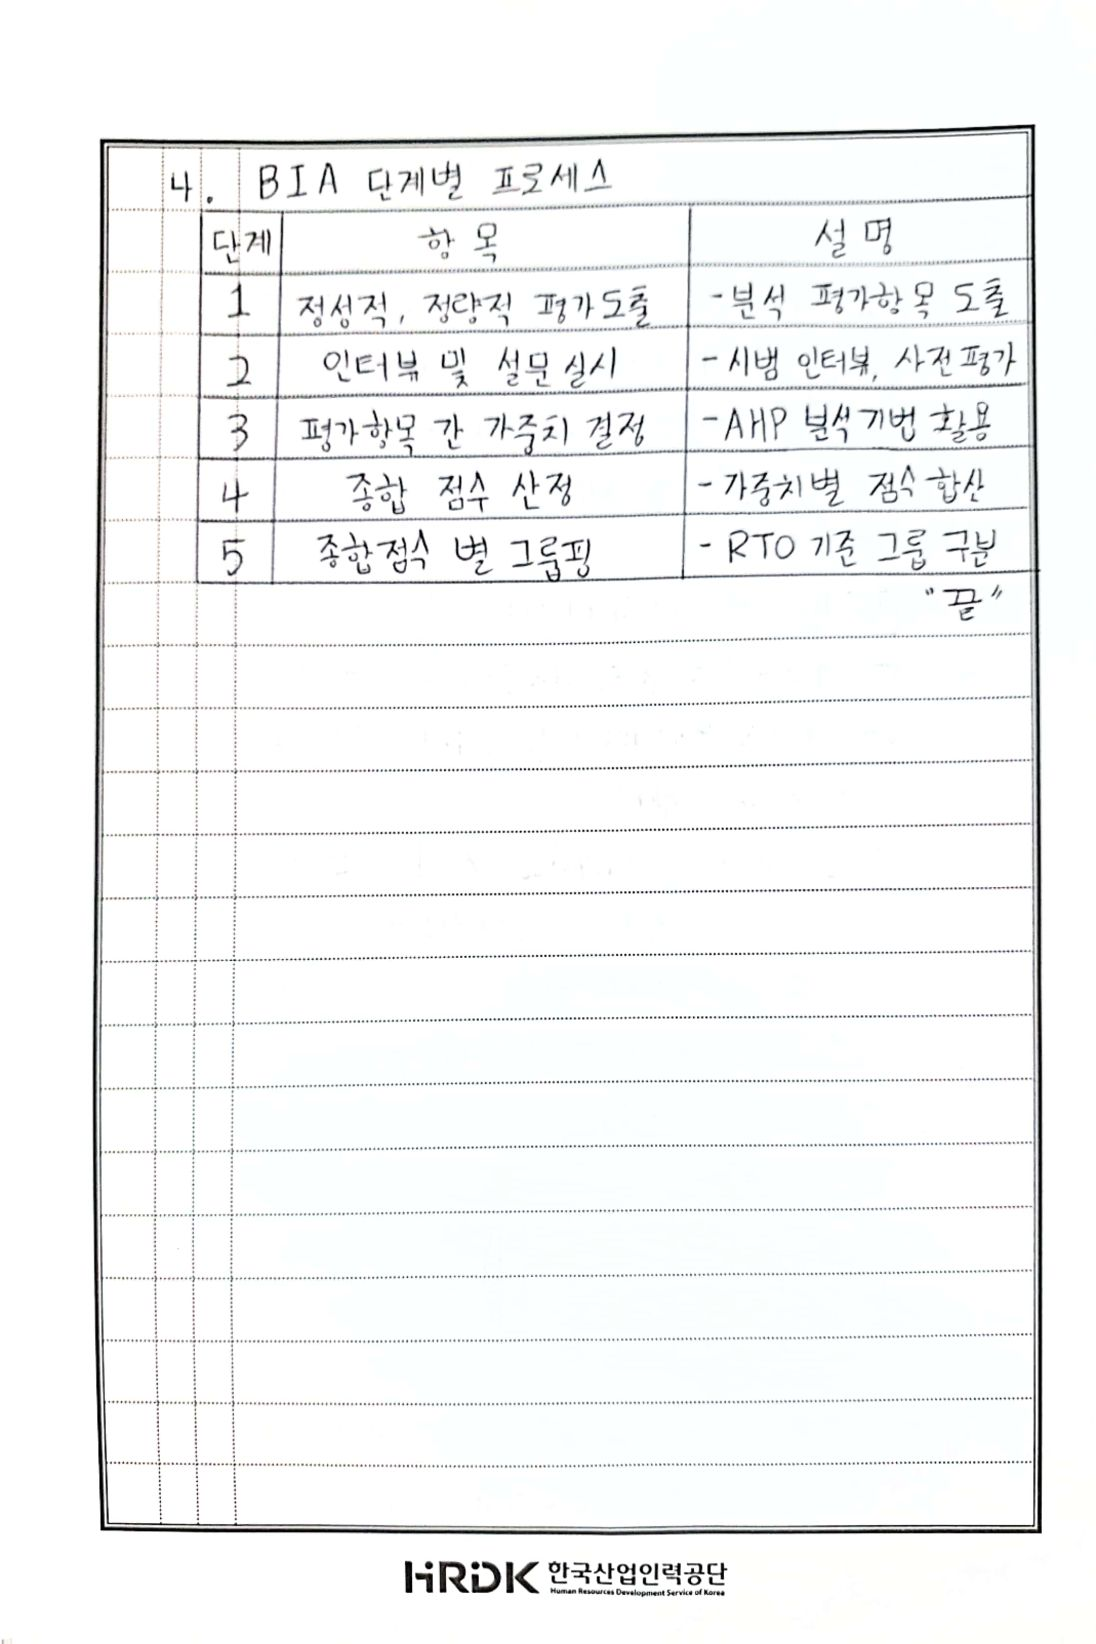 4. BIA 단계별 프로세스
단계 항목 설명
1 정성적, 정량적 평가도출 -분석 평가항목 도출
2 인터뷰 및 설문실시 -시범 인터뷰, 사전평가
3 평가항목 간 가중치 결정 -AHP 분석기법 활용
4 종합 점수 산정 -가중치별 점수 합산
5 종합점수 별 그룹핑 -RTO 기준 그룹 구분
"끝"
HRDK 한국산업인력공단
Human Resources Development Service of Korea